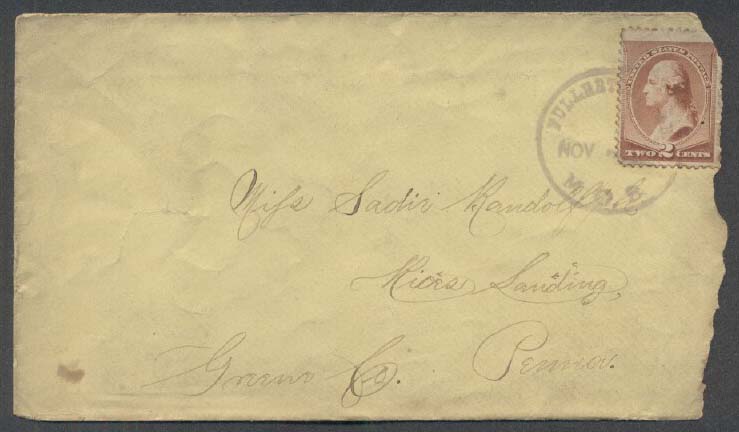 UNITED STATES POSTAGE
TWO 2 CENTS
NOV
Miss Sadie Randolph
Rices Landing,
Greene Co. Penna.